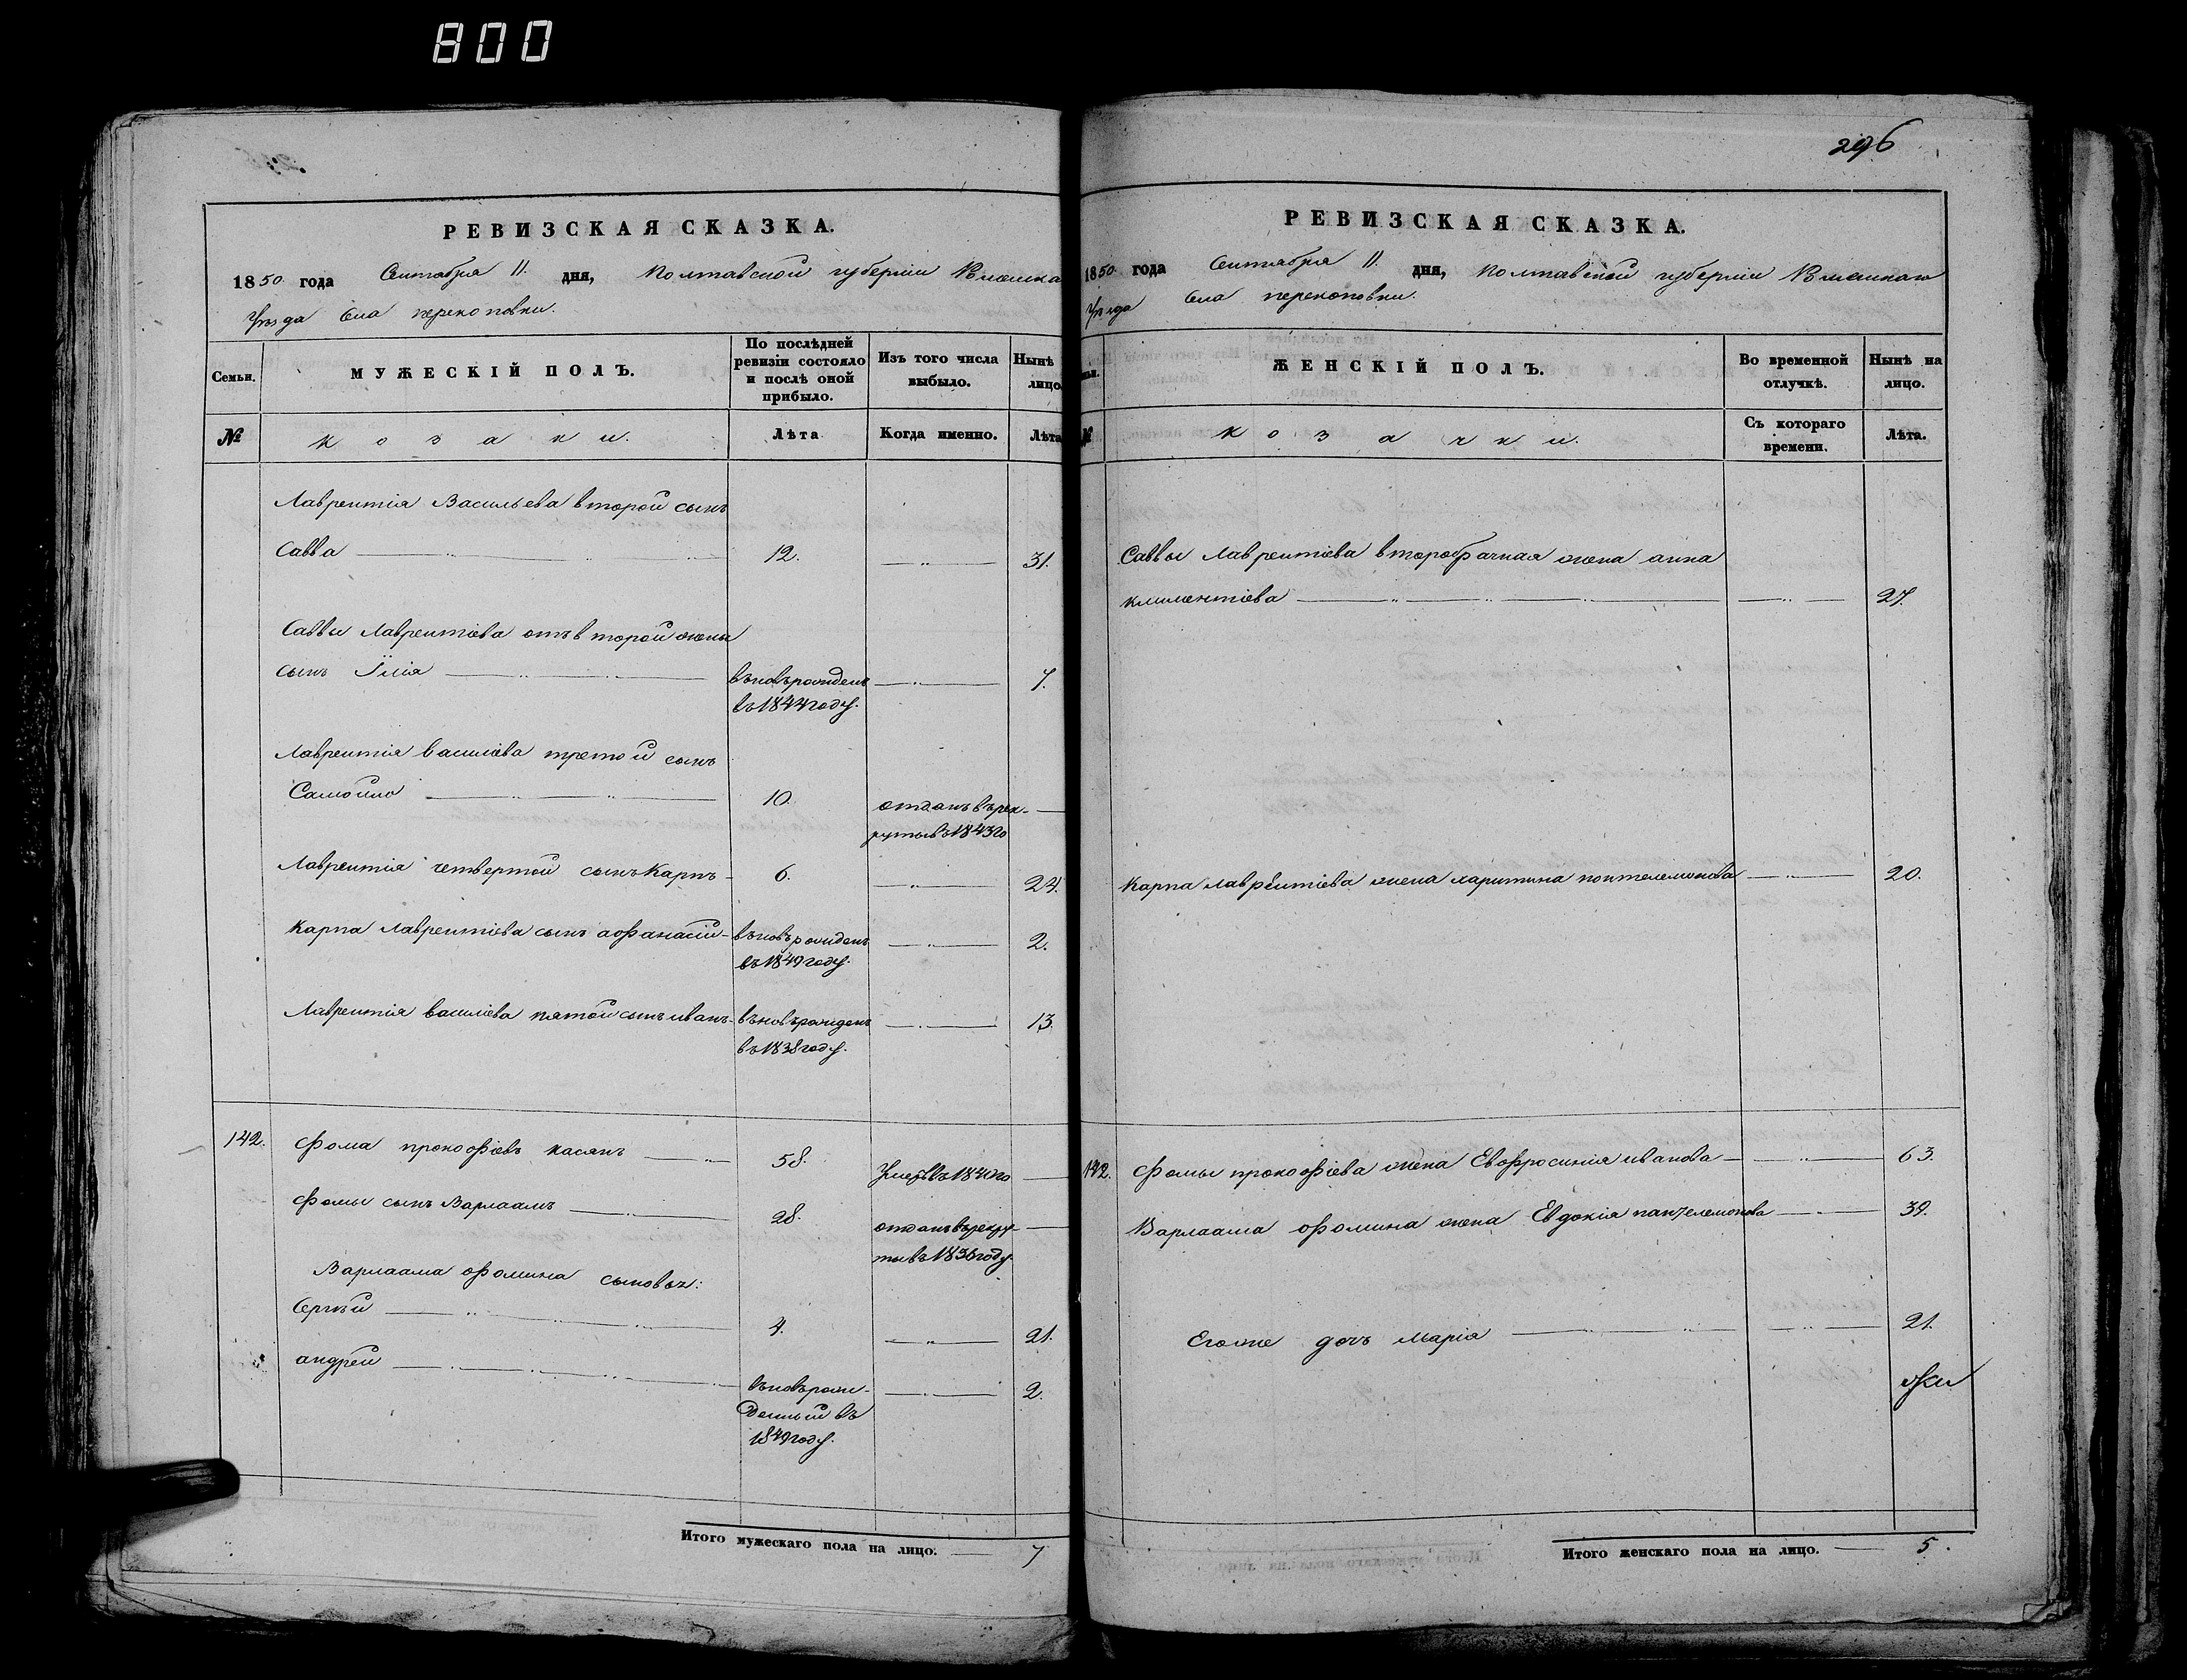 800
РЕВИЗСКАЯ СКАЗКА.
1850 года Сентября 11. дня, Полтавской губерніи
Уѣзда Села перекоповки.
Семьи.
МУЖЕСКІЙ ПОЛЪ.
По послѣдней ревизіи состояло и послѣ оной прибыло.
Изъ того числа выбыло.
Нынѣ
лицо.
№
козаки.
Лѣта
Когда именно.
Лѣта
Лаврентія Васильева второй сынъ
Савва 12. 31.
Саввы Лаврентіева отъ второй жены
сынъ Илія вновь рожденъ 7.
въ 1844 году.
Лаврентія василіева третой сынъ
Самойло 10. отданъ въ рек-
руты въ 1843 го
Лаврентія четвертой сынъ Карпъ 6. 24.
Карпа Лаврентіева сынъ афанасій вновь рожденъ 2.
въ 1849 году.
Лаврентія василіева пятой сынъ иванъ вновь рожденъ 13.
въ 1838 году.
142. Фома прокофіевъ касянъ 58. Умеръ въ 1840 го
Фомы сынъ Варлаамъ 28. отданъ въ рекру-
ты въ 1836 году.
Варлаама фомина сыновья:
Сергѣй 4. 21.
андрей вновь рож- 2.
денный въ
1849 году.
Итого мужескаго пола на лицо. 7
296
РЕВИЗСКАЯ СКАЗКА.
1850 года Сентября 11. дня, Полтавской губерніи
Уѣзда Села перекоповки.
ЖЕНСКІЙ ПОЛЪ.
Во временной отлучкѣ.
Нынѣ на лицо.
№
козачки.
Съ котораго времени.
Лѣта.
Саввы Лаврентіева второбрачная жена анна
климентіева 27.
Карпа лаврентіева жена харитина понтелемонова 20.
142. Фомы прокофіева жена Евфросинія иванова 63.
Варлаама фомина жена Евдокія пантелемонова 39.
Егоже дочь Марія 21.
Итого женскаго пола на лицо. 5.